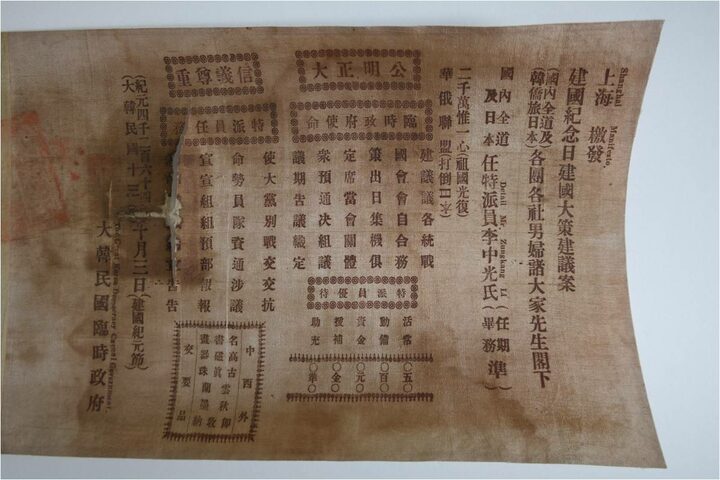 Shanghai Manifesto.
上海 檄發
建國紀念日建國大策建議案
(國內全道及
韓僑旅日本)各團各社男婦諸大家先生閣下
國內全道
及日本 任特派員李中光氏(任期 畢務 準)
Detail Mr. Zungkang Li
二千萬惟一心(祖國光復)
華俄聯盟打倒日本
公明正大
臨時政府使命
建議議各統戰
國會會自合務
策出日集機俱
定席當會關體
衆預通决組議
議期告議織定
特派員優待
活常〇五〇
動備〇百〇
資金〇元〇
援補〇金〇
助充〇準〇
信義尊重
特派員任
使大黨別戰交交抗
命勞員隊賚通涉議
宣宣組組預部報報
告告
中西外
名高古雲秋
書磁眞
畫器珠蘭墨
交要品
(紀元四千二百六十四
大韓民國十三 十月三日(建國紀元節)
大韓民國臨時政府